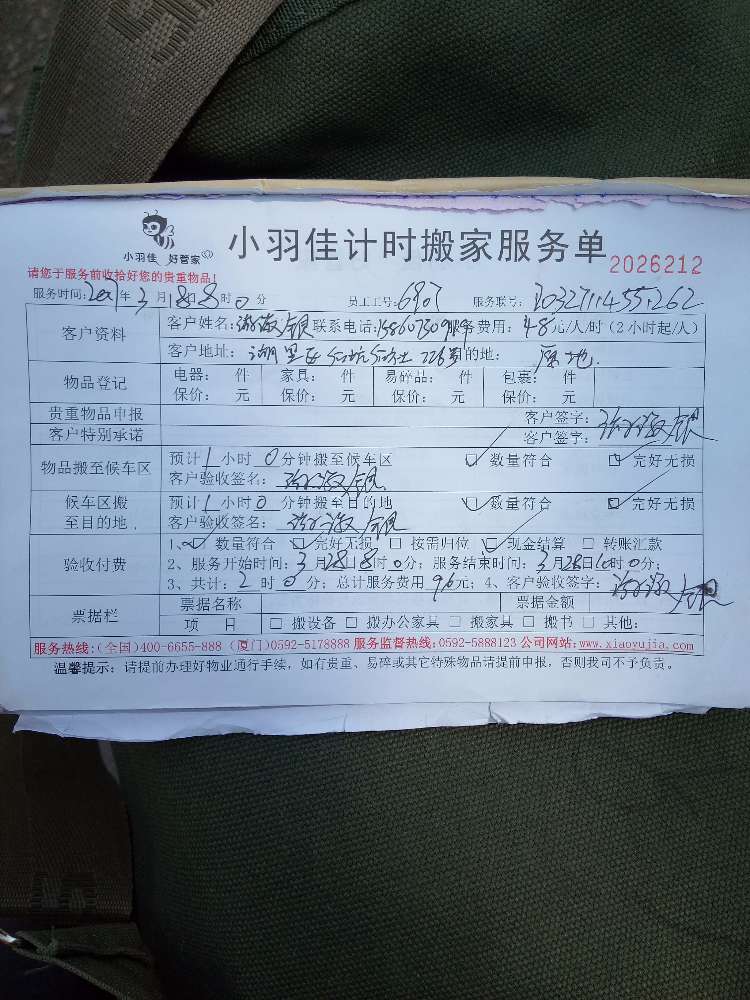 小羽佳 好管家
小羽佳计时搬家服务单
2026212
请您于服务前收拾好您的贵重物品!
服务时间: 年3月 8时0分 员工工号:6907 服务联号:
客户资料 客户姓名: 银 联系电话: 服务费用:48元/人/时(2小时起/人)
客户地址:湖里区 226号 目的地:原地.
物品登记 电器: 件 家具: 件 易碎品: 件 包裹: 件
保价: 元 保价: 元 保价: 元 保价: 元
贵重物品申报 客户签字:
客户特别承诺 客户签字: 海银
物品搬至候车区 预计1小时0分钟搬至候车区 ☑ 数量符合 ☑ 完好无损
客户验收签名: 海银
候车区搬至目的地 预计1小时0分钟搬至目的地 ☑ 数量符合 ☑ 完好无损
客户验收签名: 海银
验收付费 1、☑ 数量符合 ☑ 完好无损 □ 按需归位 ☑ 现金结算 □ 转账汇款
2、服务开始时间:3月28日8时0分; 服务结束时间:3月28日10时0分;
3、共计:2时0分; 总计服务费用 96元; 4、客户验收签字: 海银
票据栏 票据名称 票据金额
项 目 □ 搬设备 □ 搬办公家具 □ 搬家具 □ 搬书 □ 其他:
服务热线:(全国)400-6655-888 (厦门)0592-5178888 服务监督热线:0592-5888123 公司网站:www.xiaoyujia.com
温馨提示: 请提前办理好物业通行手续, 如有贵重、易碎或其它特殊物品请提前申报, 否则我司不予负责。